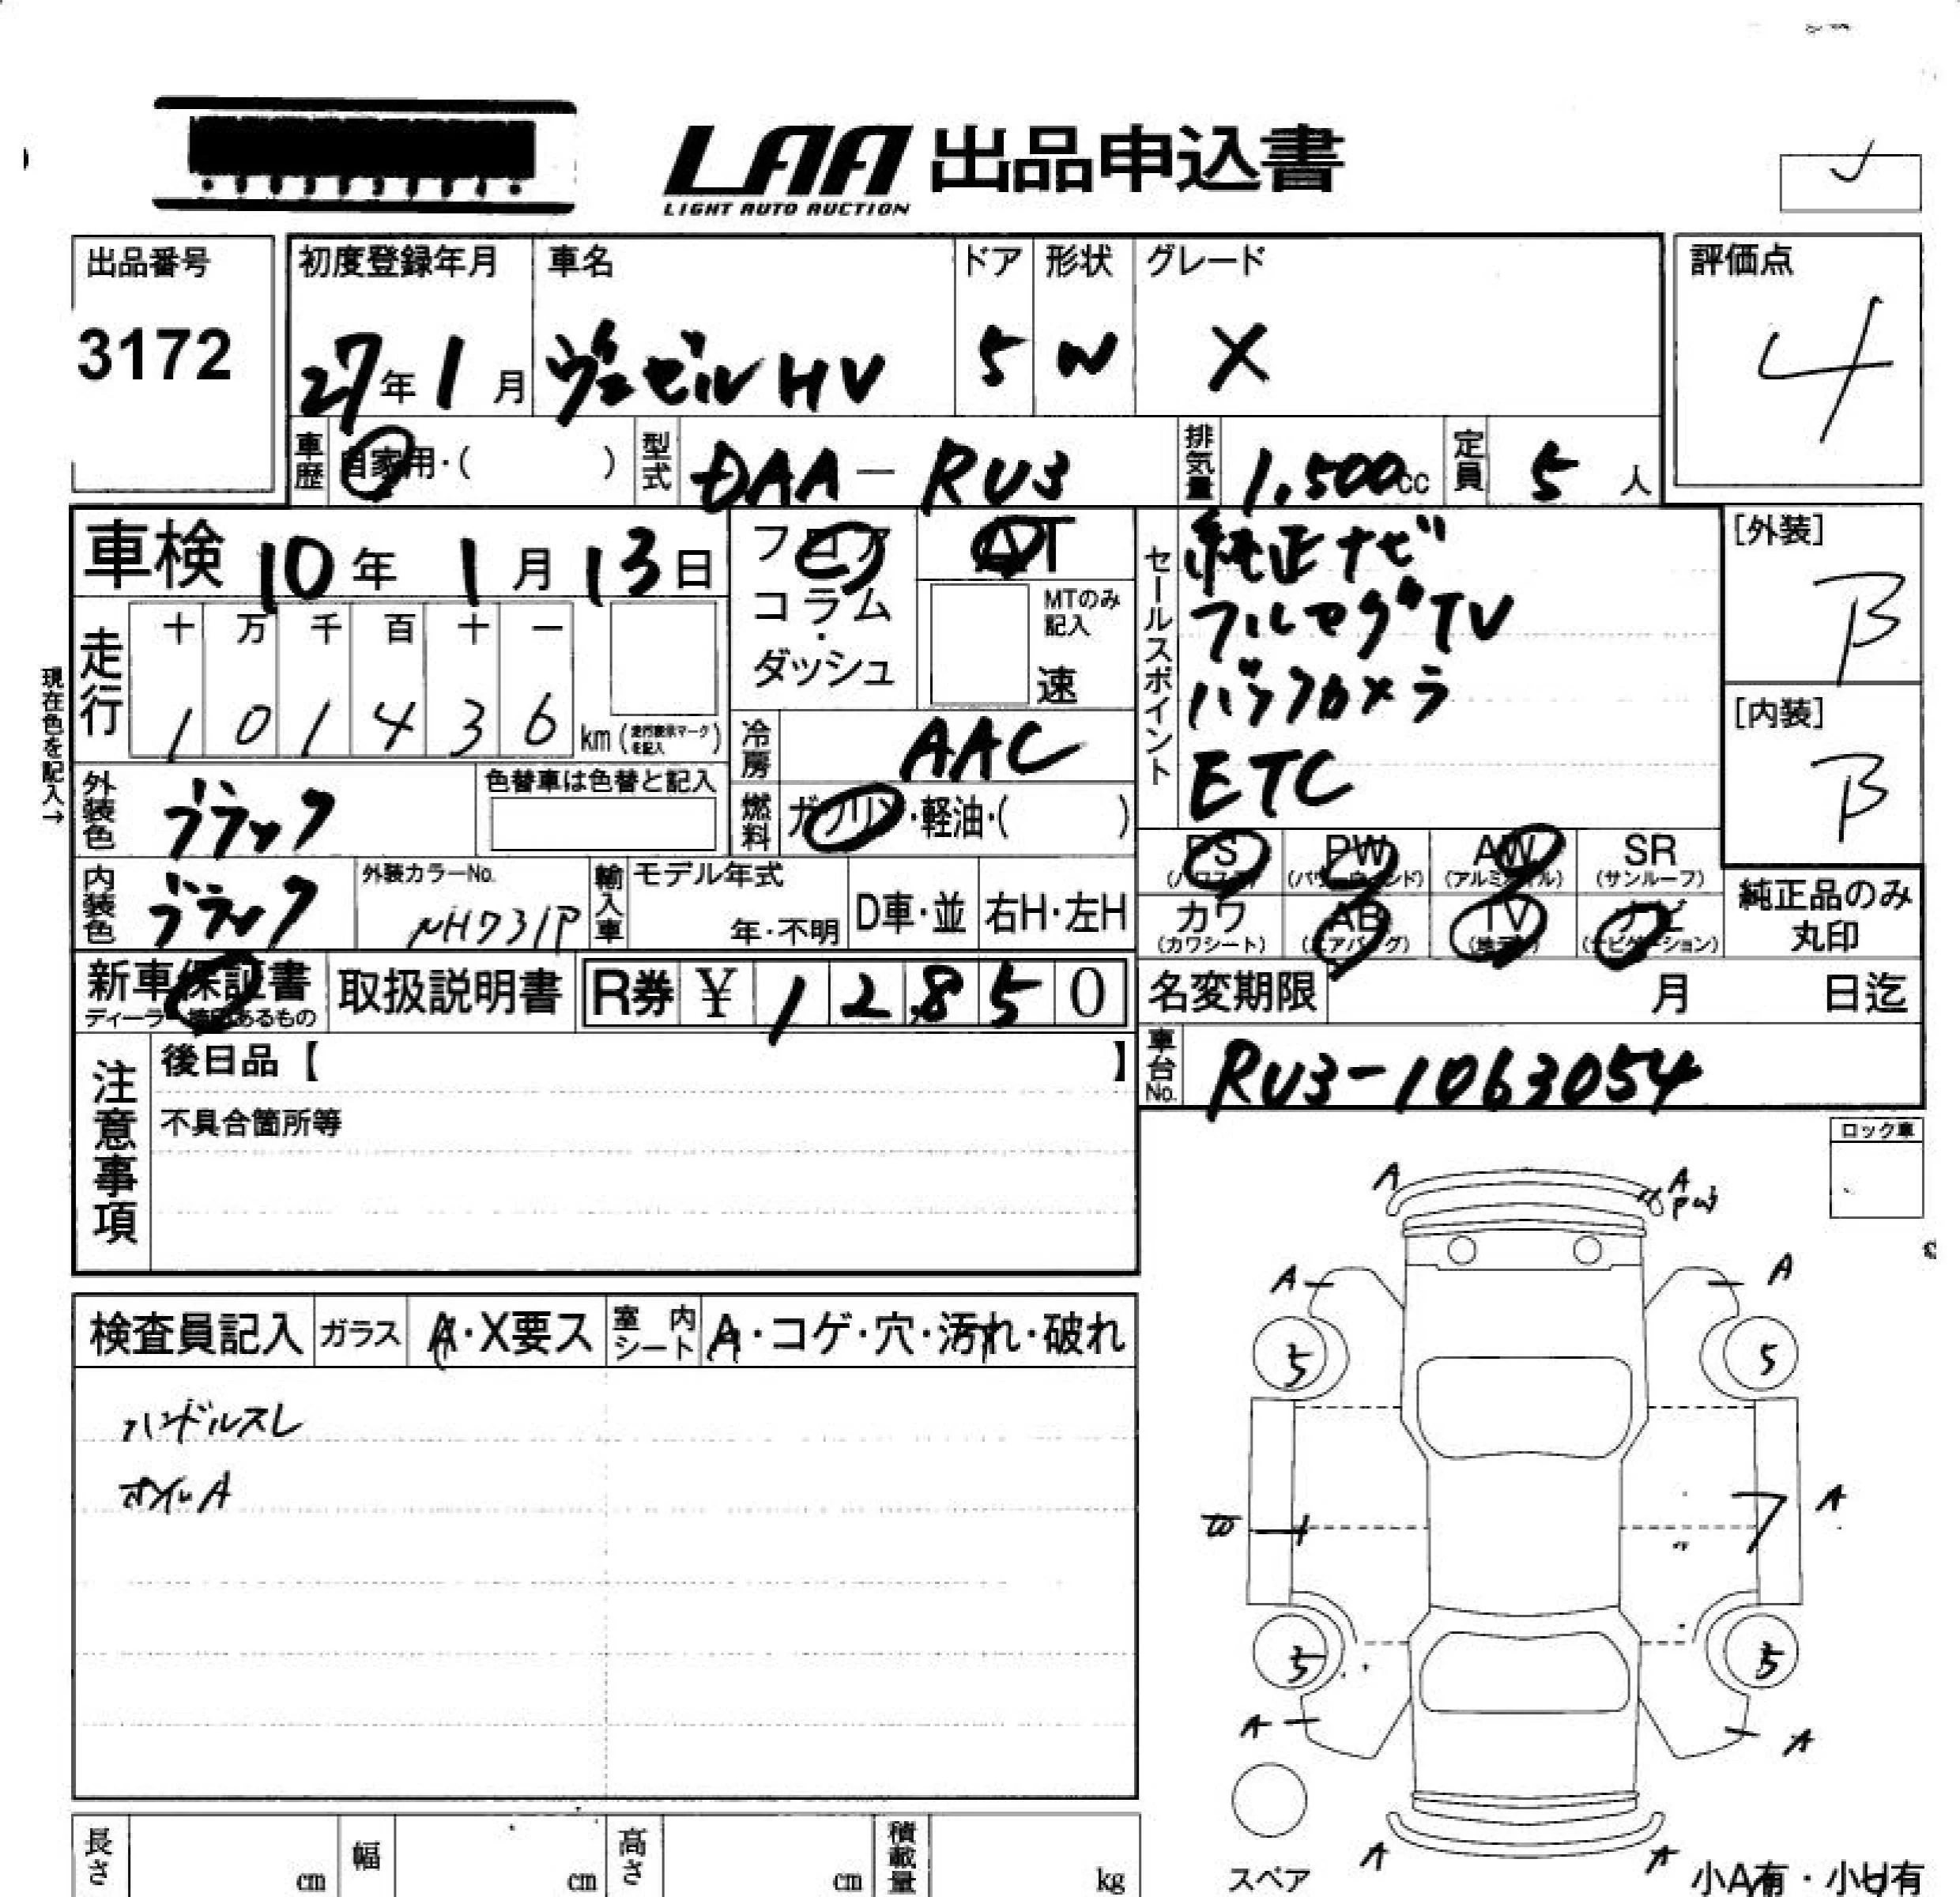 LAA 出品申込書
LIGHT AUTO AUCTION
出品番号
3172
初度登録年月
27年1月
車名
ヴェゼルHV
ドア
5
形状
W
グレード
X
評価点
4
車歴 自家用・( )
型式 DAA-RU3
排気量 1,500cc
定員 5人
車検 10年1月13日
フロア・コラム・ダッシュ
AT
MTのみ記入
速
セールスポイント
純正ナビ
フルセグTV
バックカメラ
ETC
[外装]
B
[内装]
B
現在色を記入→
走行
十 万 千 百 十 一
1 0 1 4 3 6 km (走行表示マークを記入)
冷房 AAC
燃料 ガソリン・軽油・( )
外装色 ブラック
色替車は色替と記入
内装色 ブラック
外装カラーNo.
NH731P
輸入車
モデル年式
年・不明
D車・並
右H・左H
PS (パワステ)
PW (パワーウィンド)
AW (アルミホイル)
SR (サンルーフ)
カワ (カワシート)
AB (エアバッグ)
TV (地デジ)
ナビ (ナビゲーション)
純正品のみ丸印
新車保証書
取扱説明書
R券 ¥ 12,850
名変期限 月 日迄
車台No. RU3-1063054
注意事項
後日品【 】
不具合箇所等
ロック車
検査員記入
ガラス A・X要ス
室内シート A・コゲ・穴・汚れ・破れ
ハンドルスレ
オイルA
A
A
A
A
5
5
A
5
5
A
A
A
A
スペア
小A有・小U有
長さ cm
幅 cm
高さ cm
積載量 kg